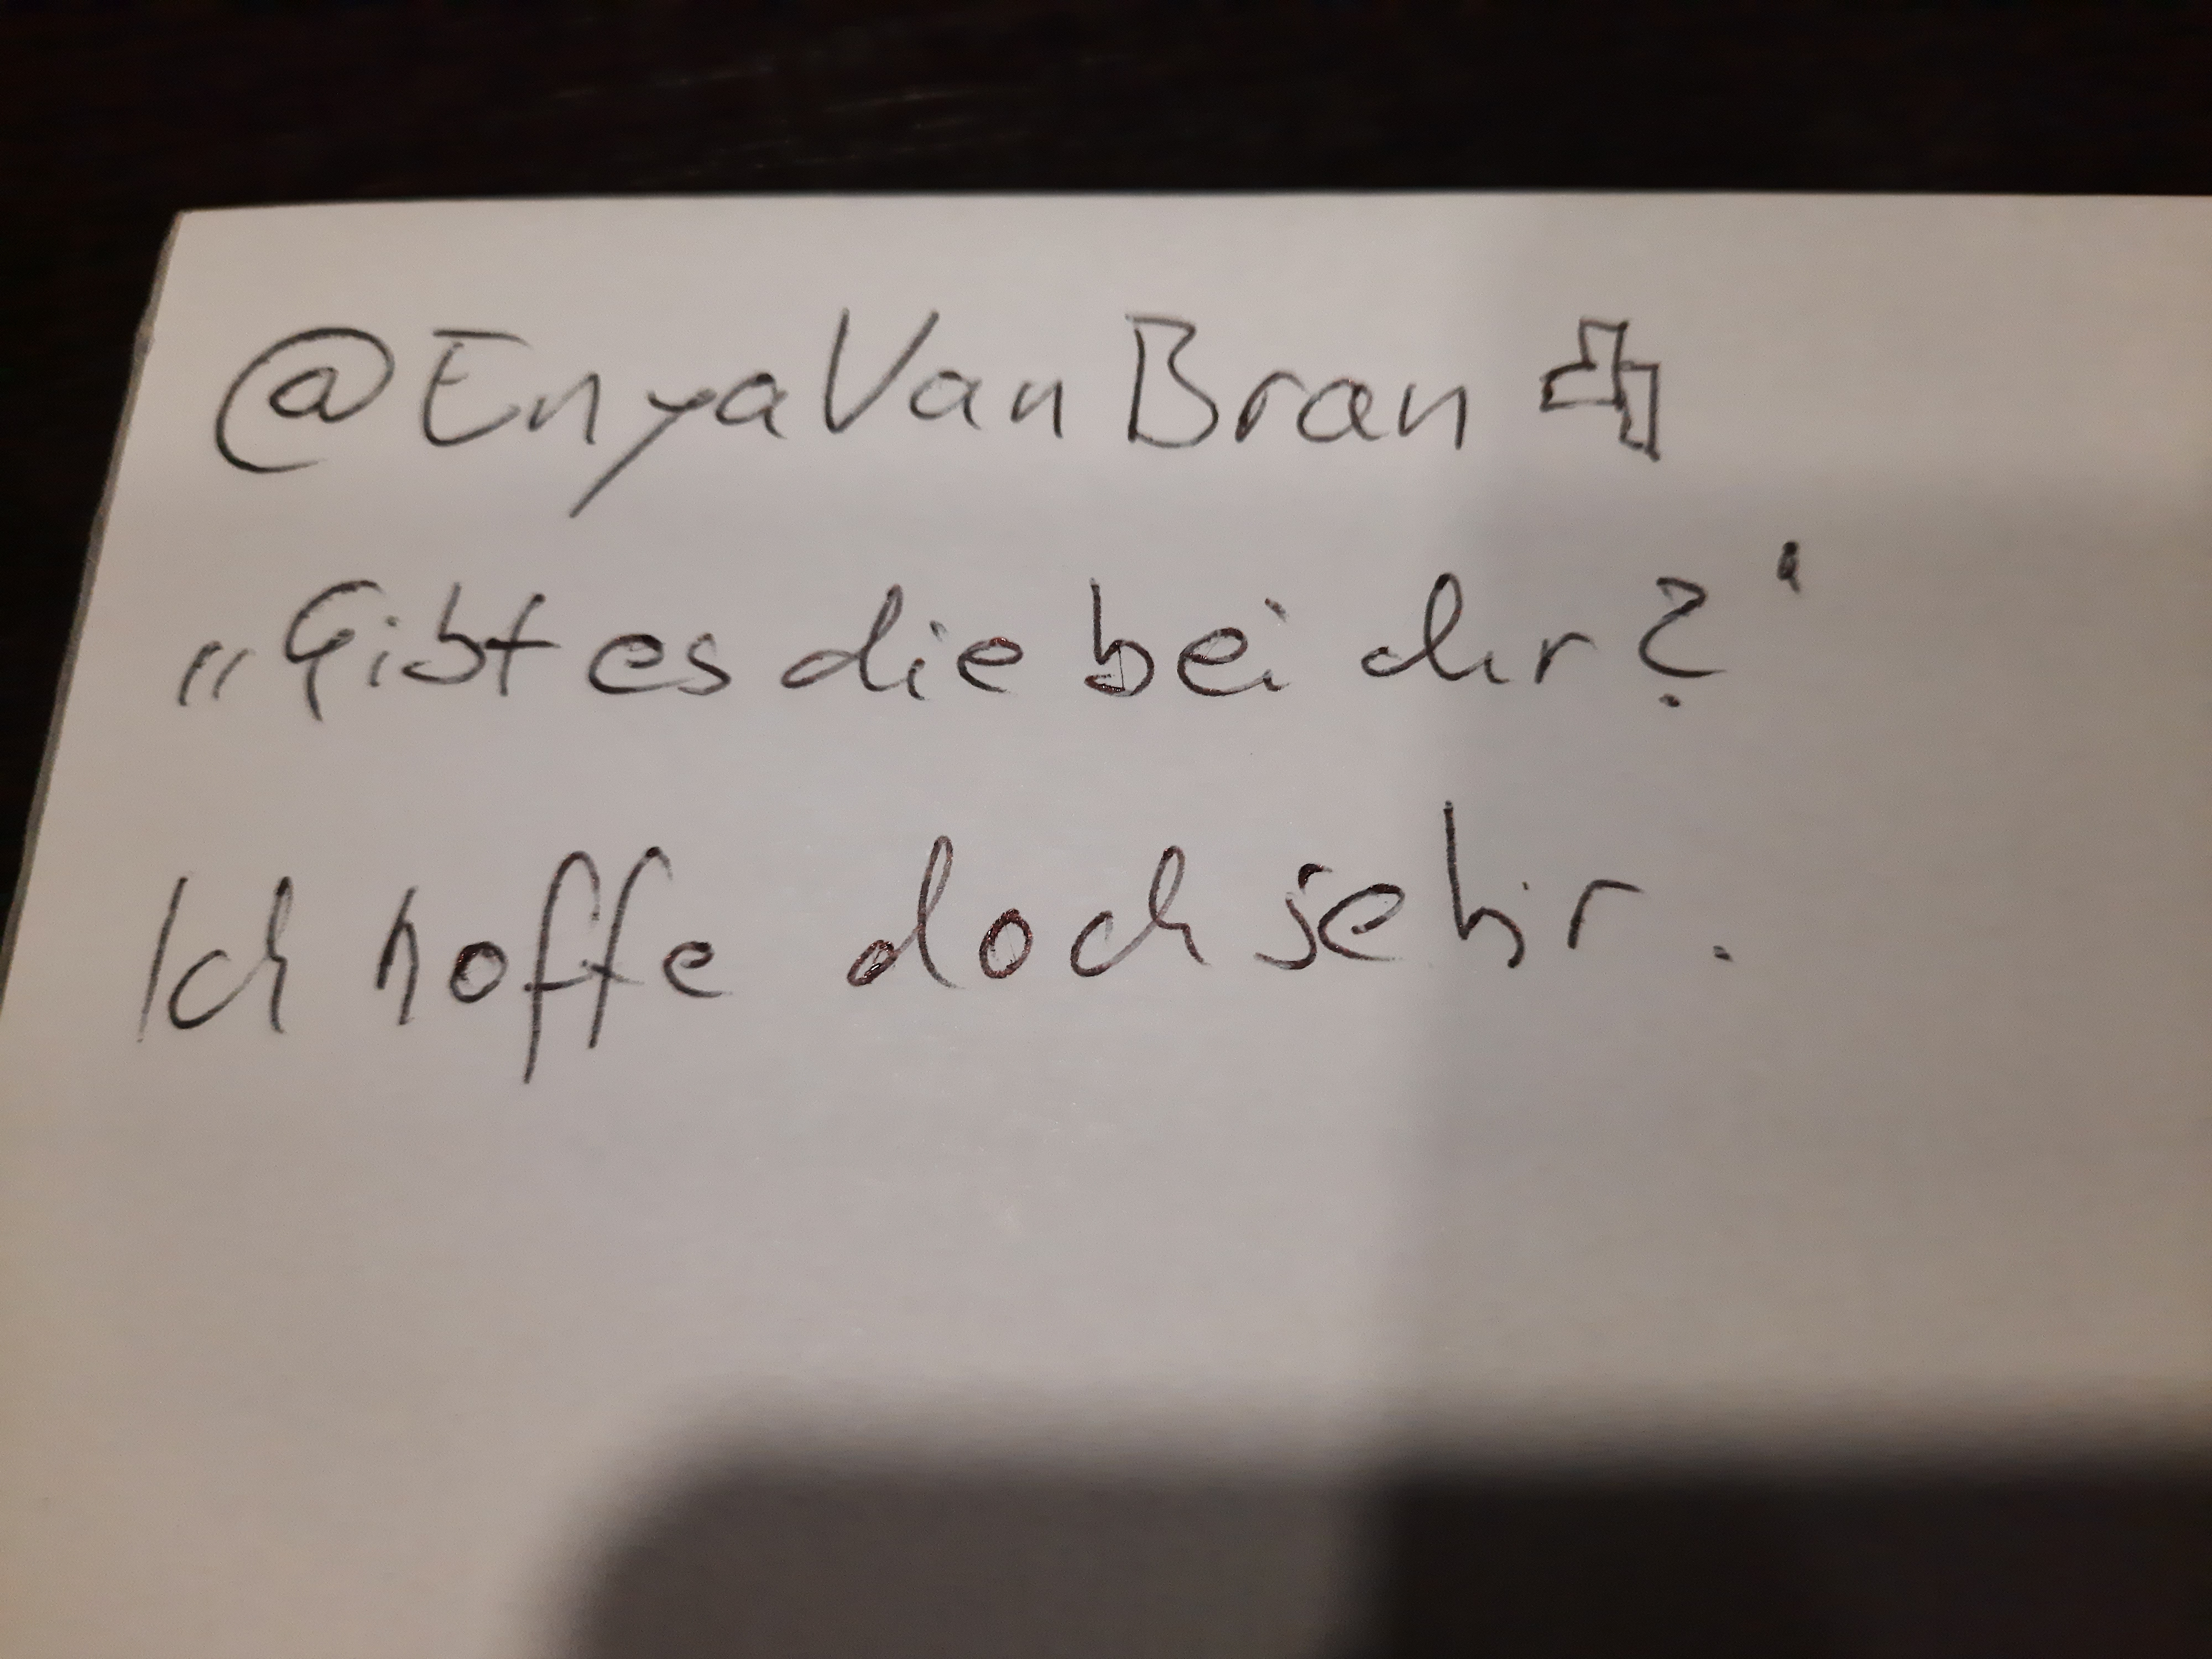 @EnyaVanBran
„Gibt es die bei dir?“
Ich hoffe doch sehr.